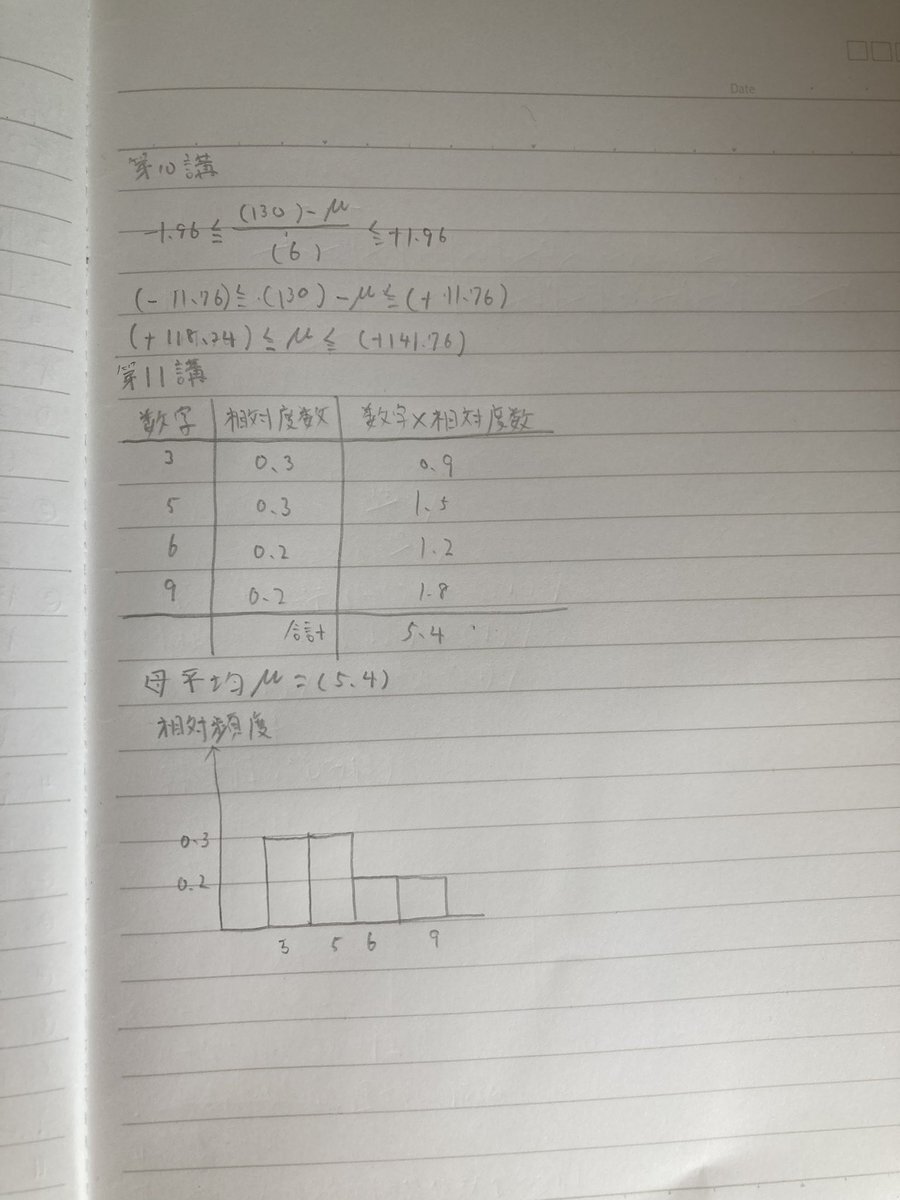 Date
第10講
-1.96 ≦ (130)-μ / (6) ≦ +1.96
(-11.76) ≦ (130) - μ ≦ (+11.76)
(+118.24) ≦ μ ≦ (+141.76)
第11講
数字 相対度数 数字×相対度数
3 0.3 0.9
5 0.3 1.5
6 0.2 1.2
9 0.2 1.8
合計 5.4
母平均 μ = (5.4)
相対頻度
0.3
0.2
3 5 6 9